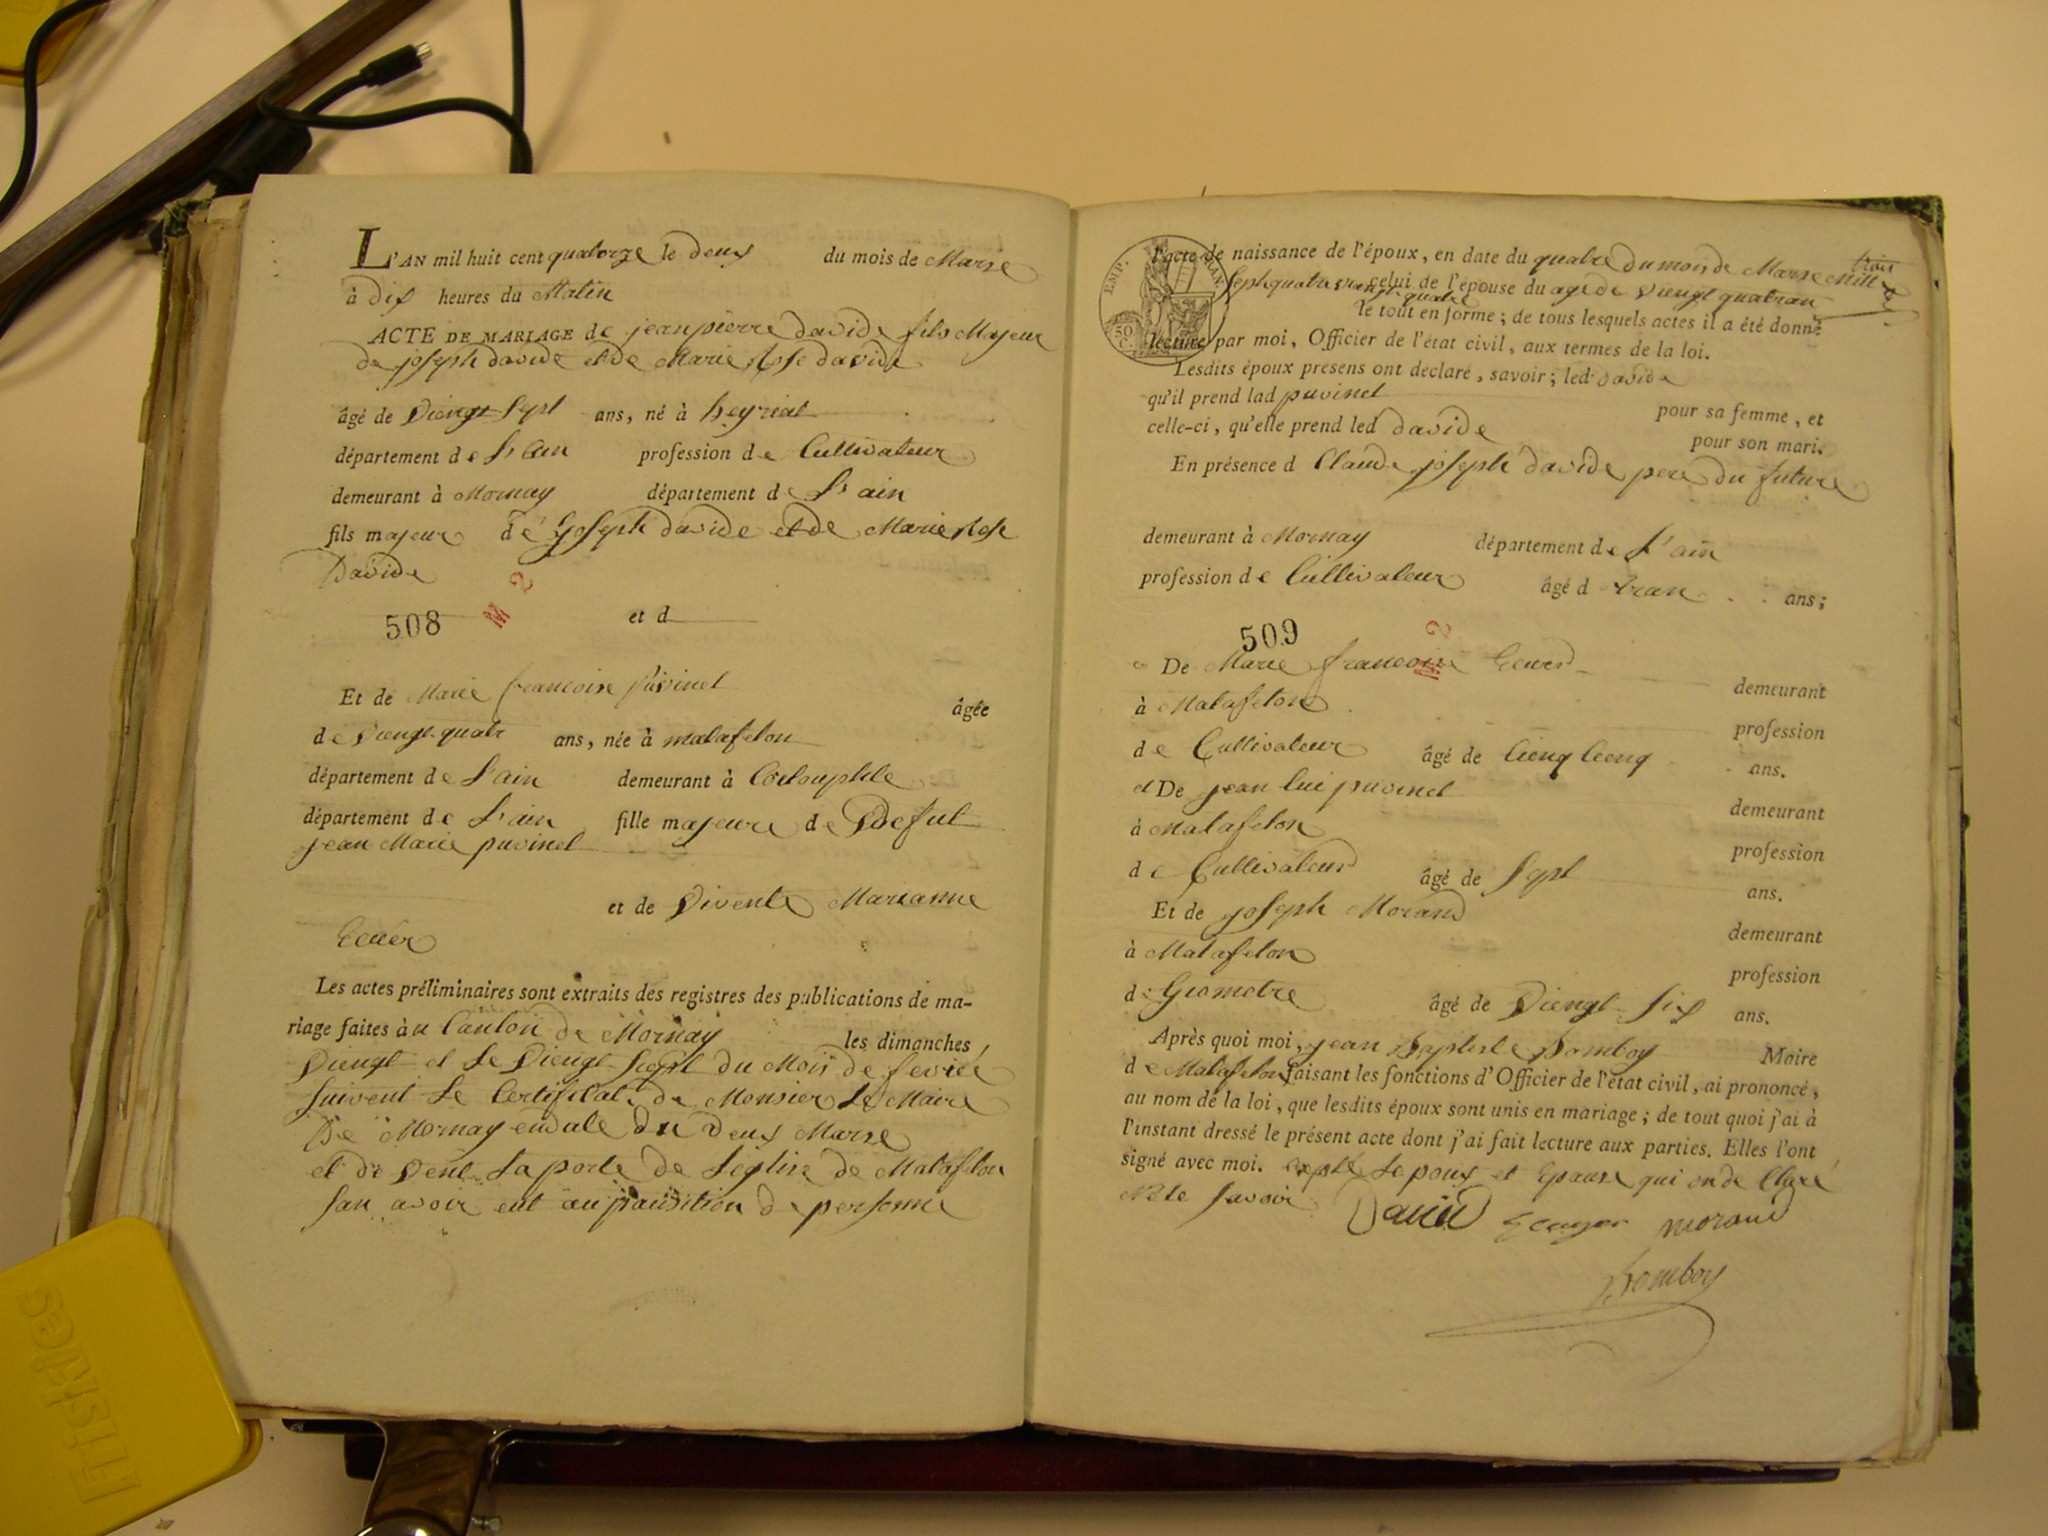 L'AN mil huit cent quatorze le deux du mois de Marse
à dix heures du Matin
ACTE DE MARIAGE de jean pierre davide fils Majeur
de joseph davide et de Marie Rose davide
âgé de Viengt Sept ans, né à heyriat
département de L'ain profession de Cultivateur
demeurant à Mornay département de L'ain
fils majeur de Joseph davide et de Marie Rose
Davide
508
et d
Et de Marie francoise Puvinel
âgée
de Viengt quatr ans, née à matafelon
département de L'ain demeurant à
département de L'ain fille majeure de Defut
jean Marie puvinel
et de Vivente Marianne
Ecuer
Les actes préliminaires sont extraits des registres des publications de ma-
riage faites àu Canton de Mornay les dimanches
Viengt et Le Viengt Sept du Mois de fevrie
Suivent Le Certificat de Monsier Le Maire
De Mornay en date du deux Marse
et de vent La porte de Leglise de Matafelon
San avoir eut de personne
EMP. FRAN.
50 C.
l'acte de naissance de l'époux, en date du quatre du mois de Marse Mill
trois
Sept quatre vengt quatre celui de l'épouse du age de Viengt quatran
le tout en forme; de tous lesquels actes il a été donné
lecture par moi, Officier de l'état civil, aux termes de la loi.
Lesdits époux presens ont declaré, savoir; led. davide
qu'il prend lad puvinel
pour sa femme, et
celle-ci, qu'elle prend led davide
pour son mari.
En présence d Claude joseph davide pere du future
demeurant à Mornay département de L'ain
profession de Cultivateur âgé d ans;
509
De Marie francoise
demeurant
à Matafelon
profession
de Cultivateur âgé de Cienq Cienq ans.
et De jean lui puvinel
demeurant
à Matafelon
profession
de Cultivateur âgé de Sept
ans.
Et de joseph Morand
demeurant
à Matafelon
profession
de Geometre âgé de Viengt Six ans.
Après quoi moi, jean Baptiste Bomboy Maire
de Matafelon faisant les fonctions d'Officier de l'état civil, ai prononcé,
au nom de la loi, que lesdits époux sont unis en mariage; de tout quoi j'ai à
l'instant dressé le présent acte dont j'ai fait lecture aux parties. Elles l'ont
signé avec moi. Le poux et Epause qui on de Claré
Ne le Savoir
David Ecuyer morand
Bomboy